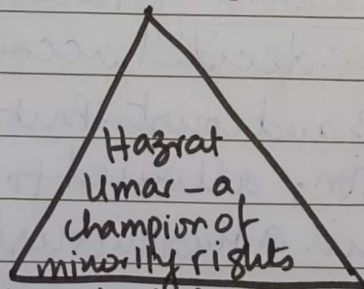 Hazrat
Umar - a
champion of
minority rights